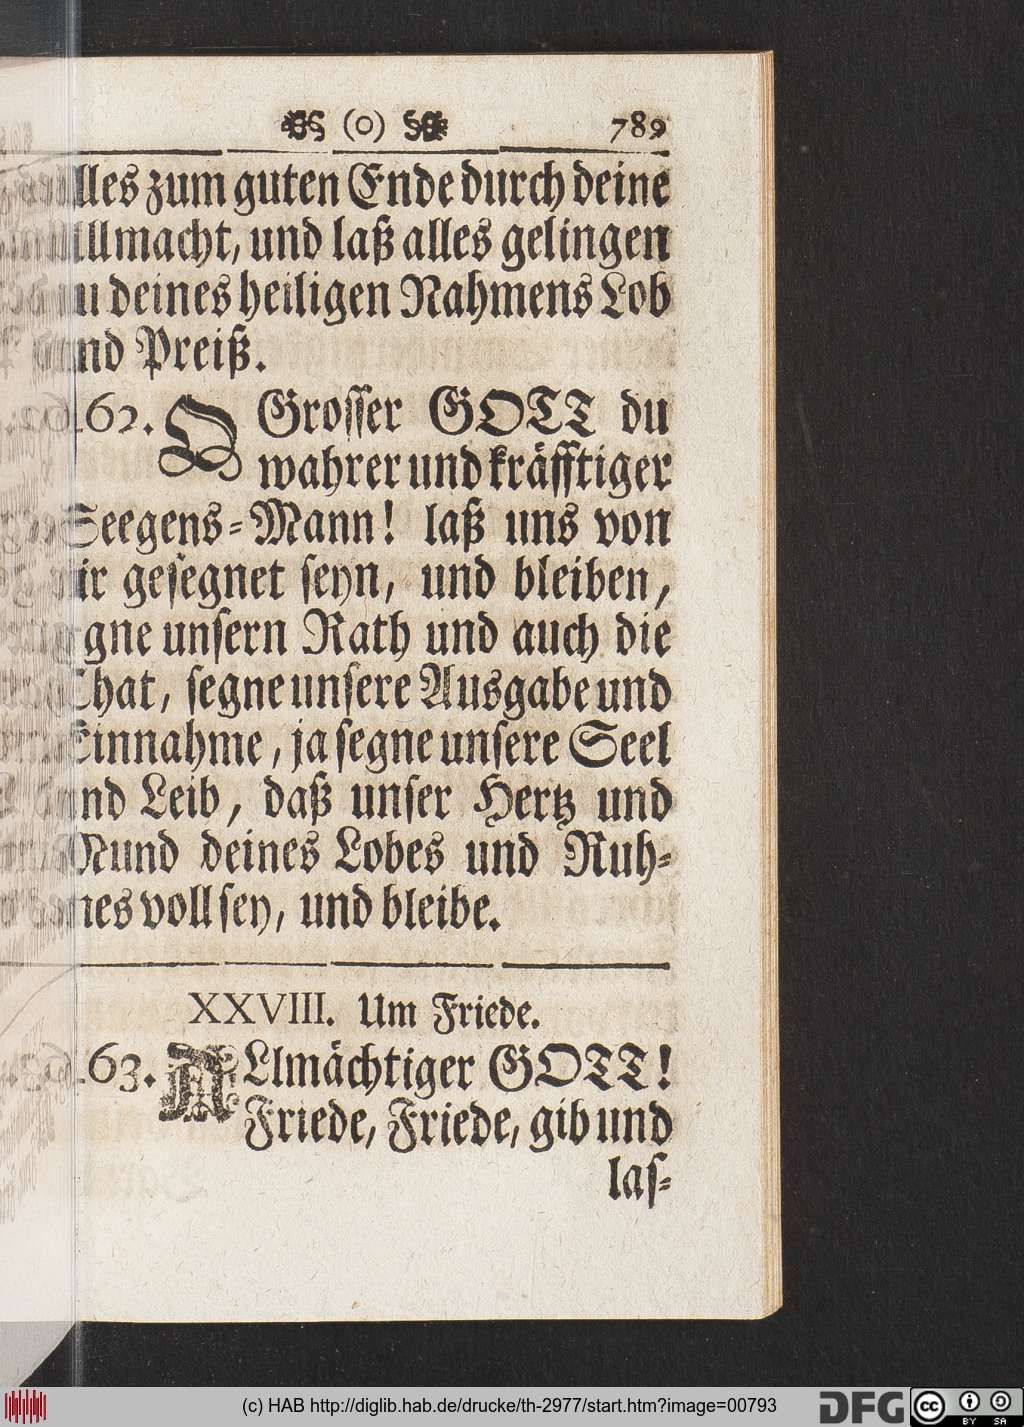 (o) 789
alles zum guten Ende durch deine
Allmacht, und laß alles gelingen
zu deines heiligen Nahmens Lob
und Preiß.
162. O Grosser GOTT du
wahrer und kräfftiger
Seegens-Mann! laß uns von
dir gesegnet seyn, und bleiben,
segne unsern Rath und auch die
That, segne unsere Ausgabe und
Einnahme, ja segne unsere Seel
und Leib, daß unser Hertz und
Mund deines Lobes und Ruh-
mes voll sey, und bleibe.
XXVIII. Um Friede.
163. ALlmächtiger GOTT!
Friede, Friede, gib und
las-
(c) HAB http://diglib.hab.de/drucke/th-2977/start.htm?image=00793
DFG
cc BY SA